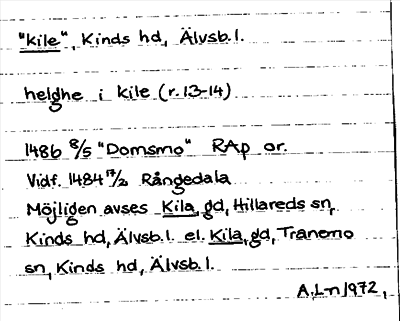 "Kile", Kinds hd, Älvsb.l.
helghe i kile (r.13-14)
1486 8/5 "Domsmo" RAp or.
Vidf. 1484 17/2 Rångedala
Möjligen avses Kila, gd, Hillareds sn,
Kinds hd, Älvsb.l. el. Kila, gd, Tranemo
sn, Kinds hd, Älvsb.l.
A.L-n 1972